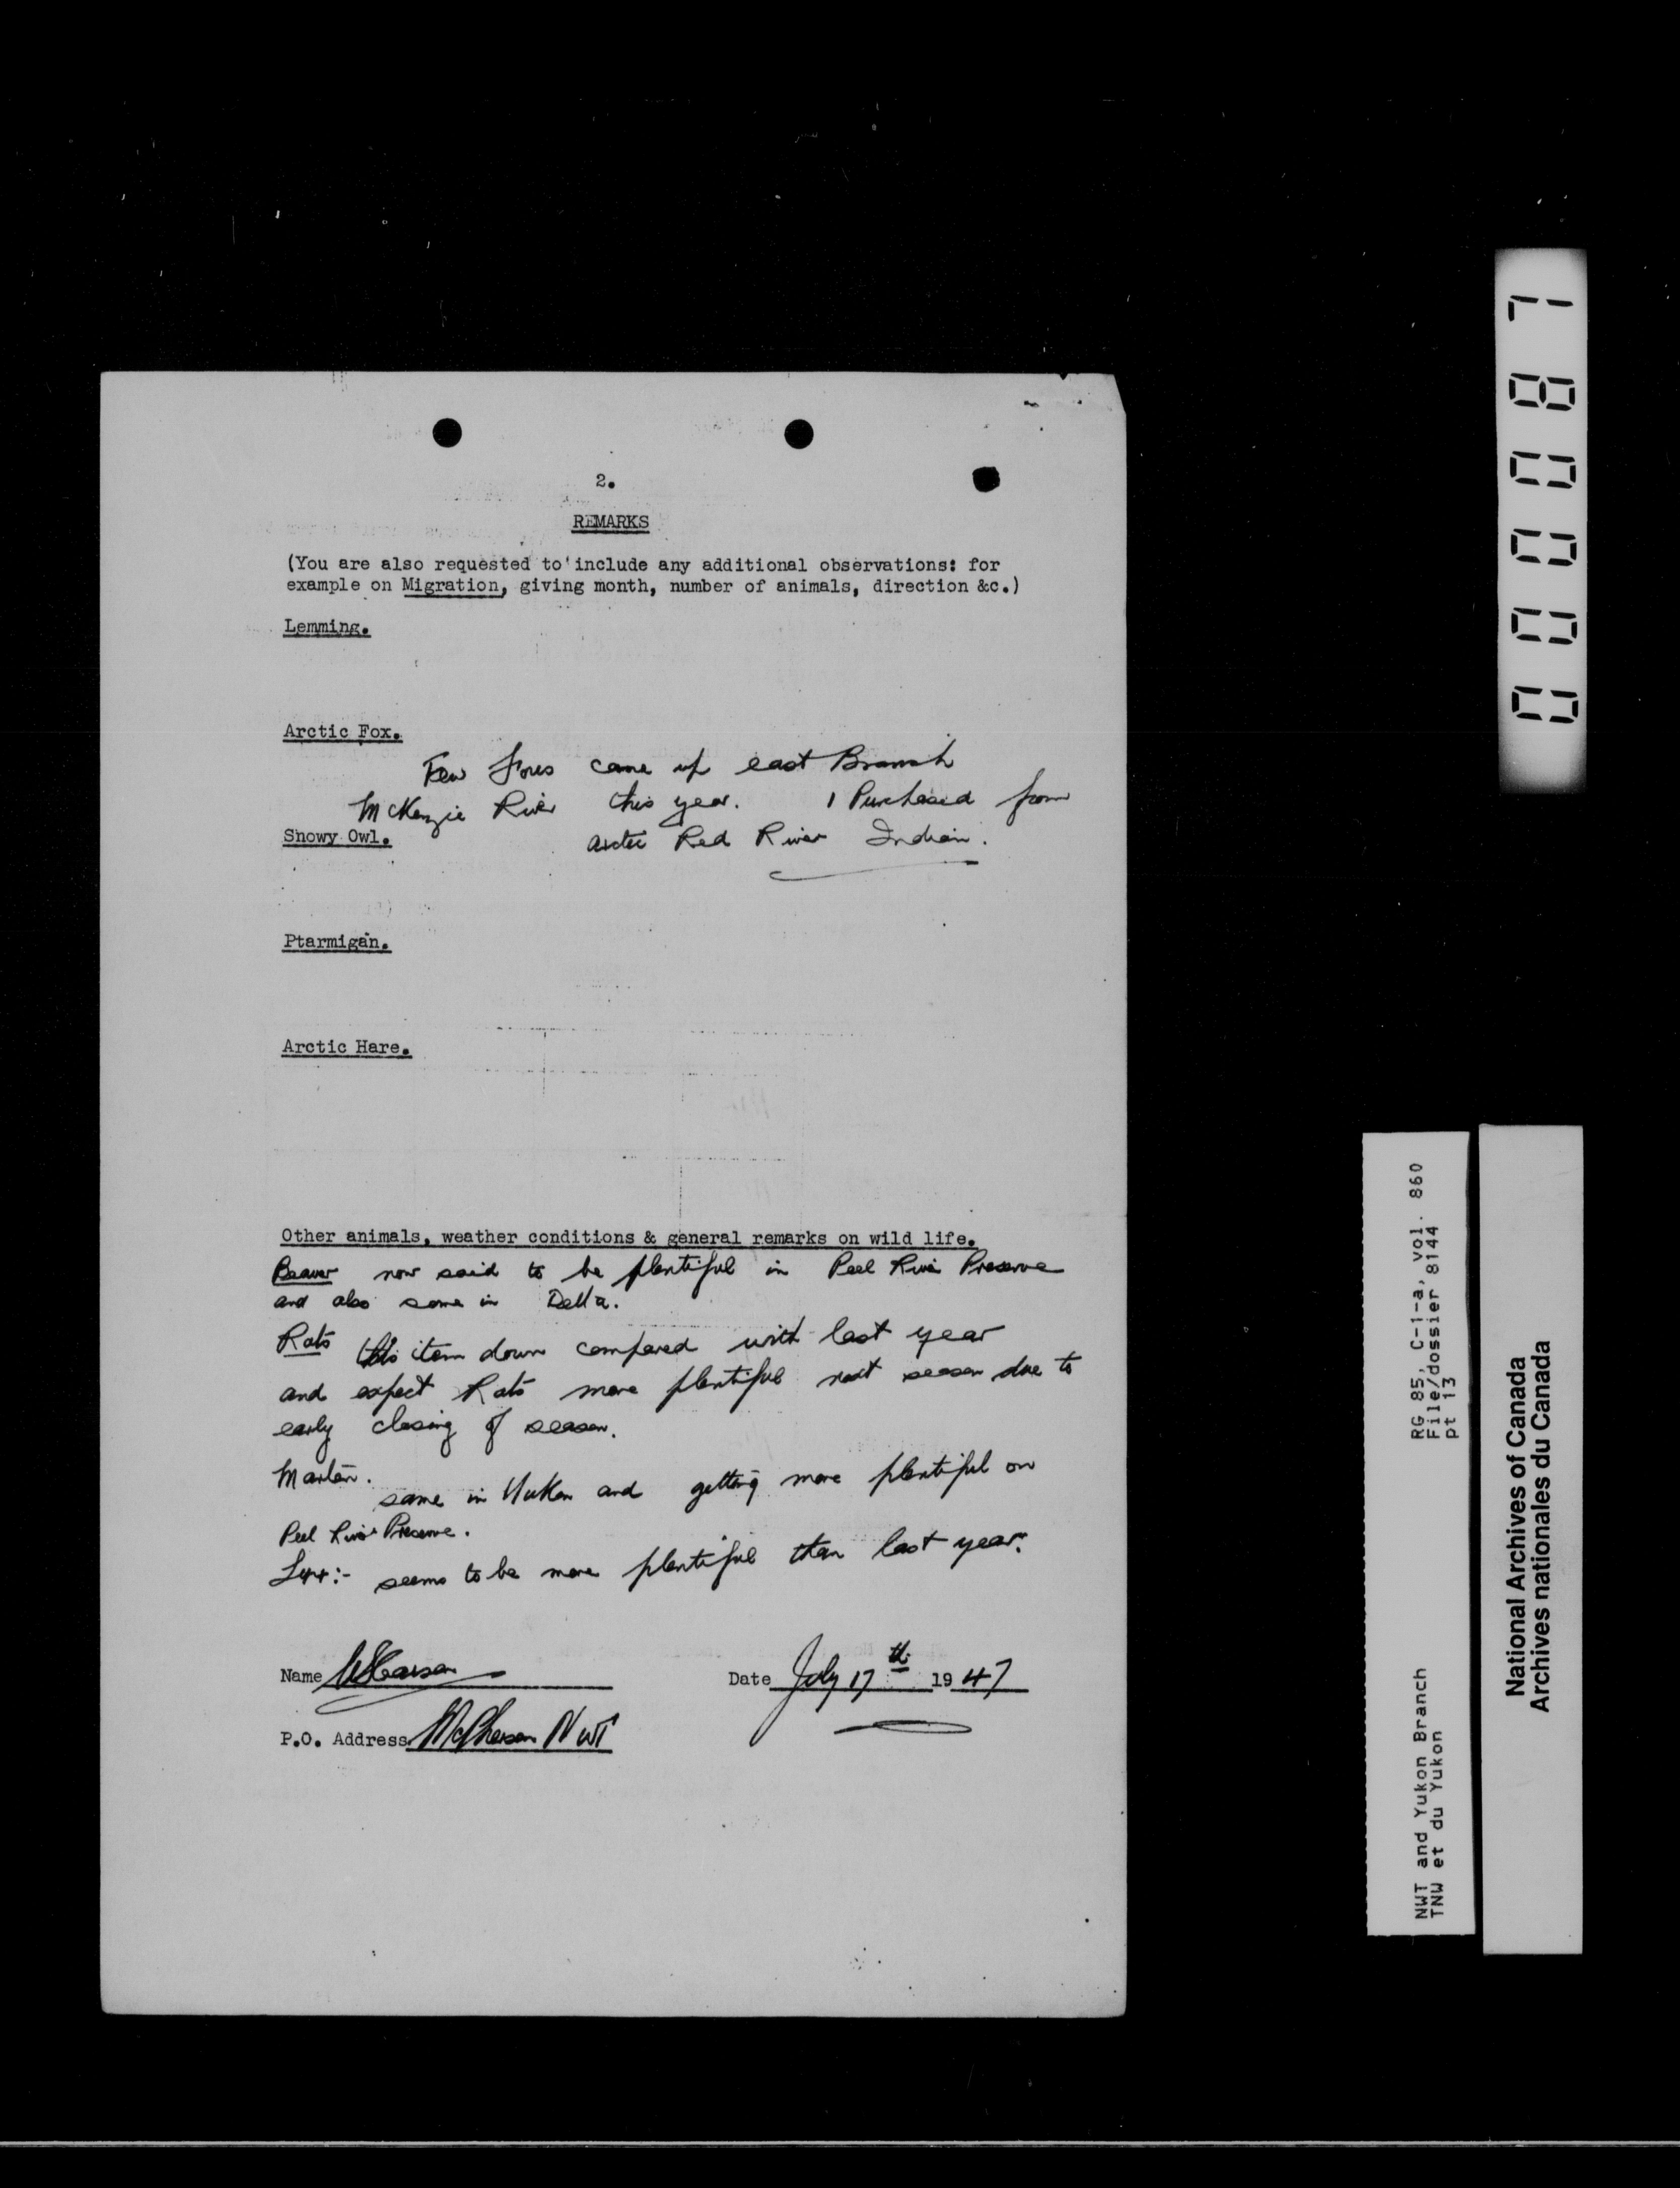 2.
REMARKS
(You are also requested to include any additional observations: for
example on Migration, giving month, number of animals, direction &c.)
Lemming.
Arctic Fox.
Few Foxes came up east Branch
McKenzie River this year. 1 Purchased from
Snowy Owl.
Arctic Red River Indian.
Ptarmigan.
Arctic Hare.
Other animals, weather conditions & general remarks on wild life.
Beaver now said to be plentiful in Peel River Preserve
and also some in Delta.
Rats this item down compared with last year
and expect Rats more plentiful next season due to
early closing of season.
Marten.
same in Yukon and getting more plentiful on
Peel River Preserve.
Lynx:- seems to be more plentiful than last year.
Name
Date July 17th 1947
P.O. Address McPherson NWT
000087
RG 85, C-1-a, vol. 860
File/dossier 8144
pt 13
NWT and Yukon Branch
TNW et du Yukon
National Archives of Canada
Archives nationales du Canada